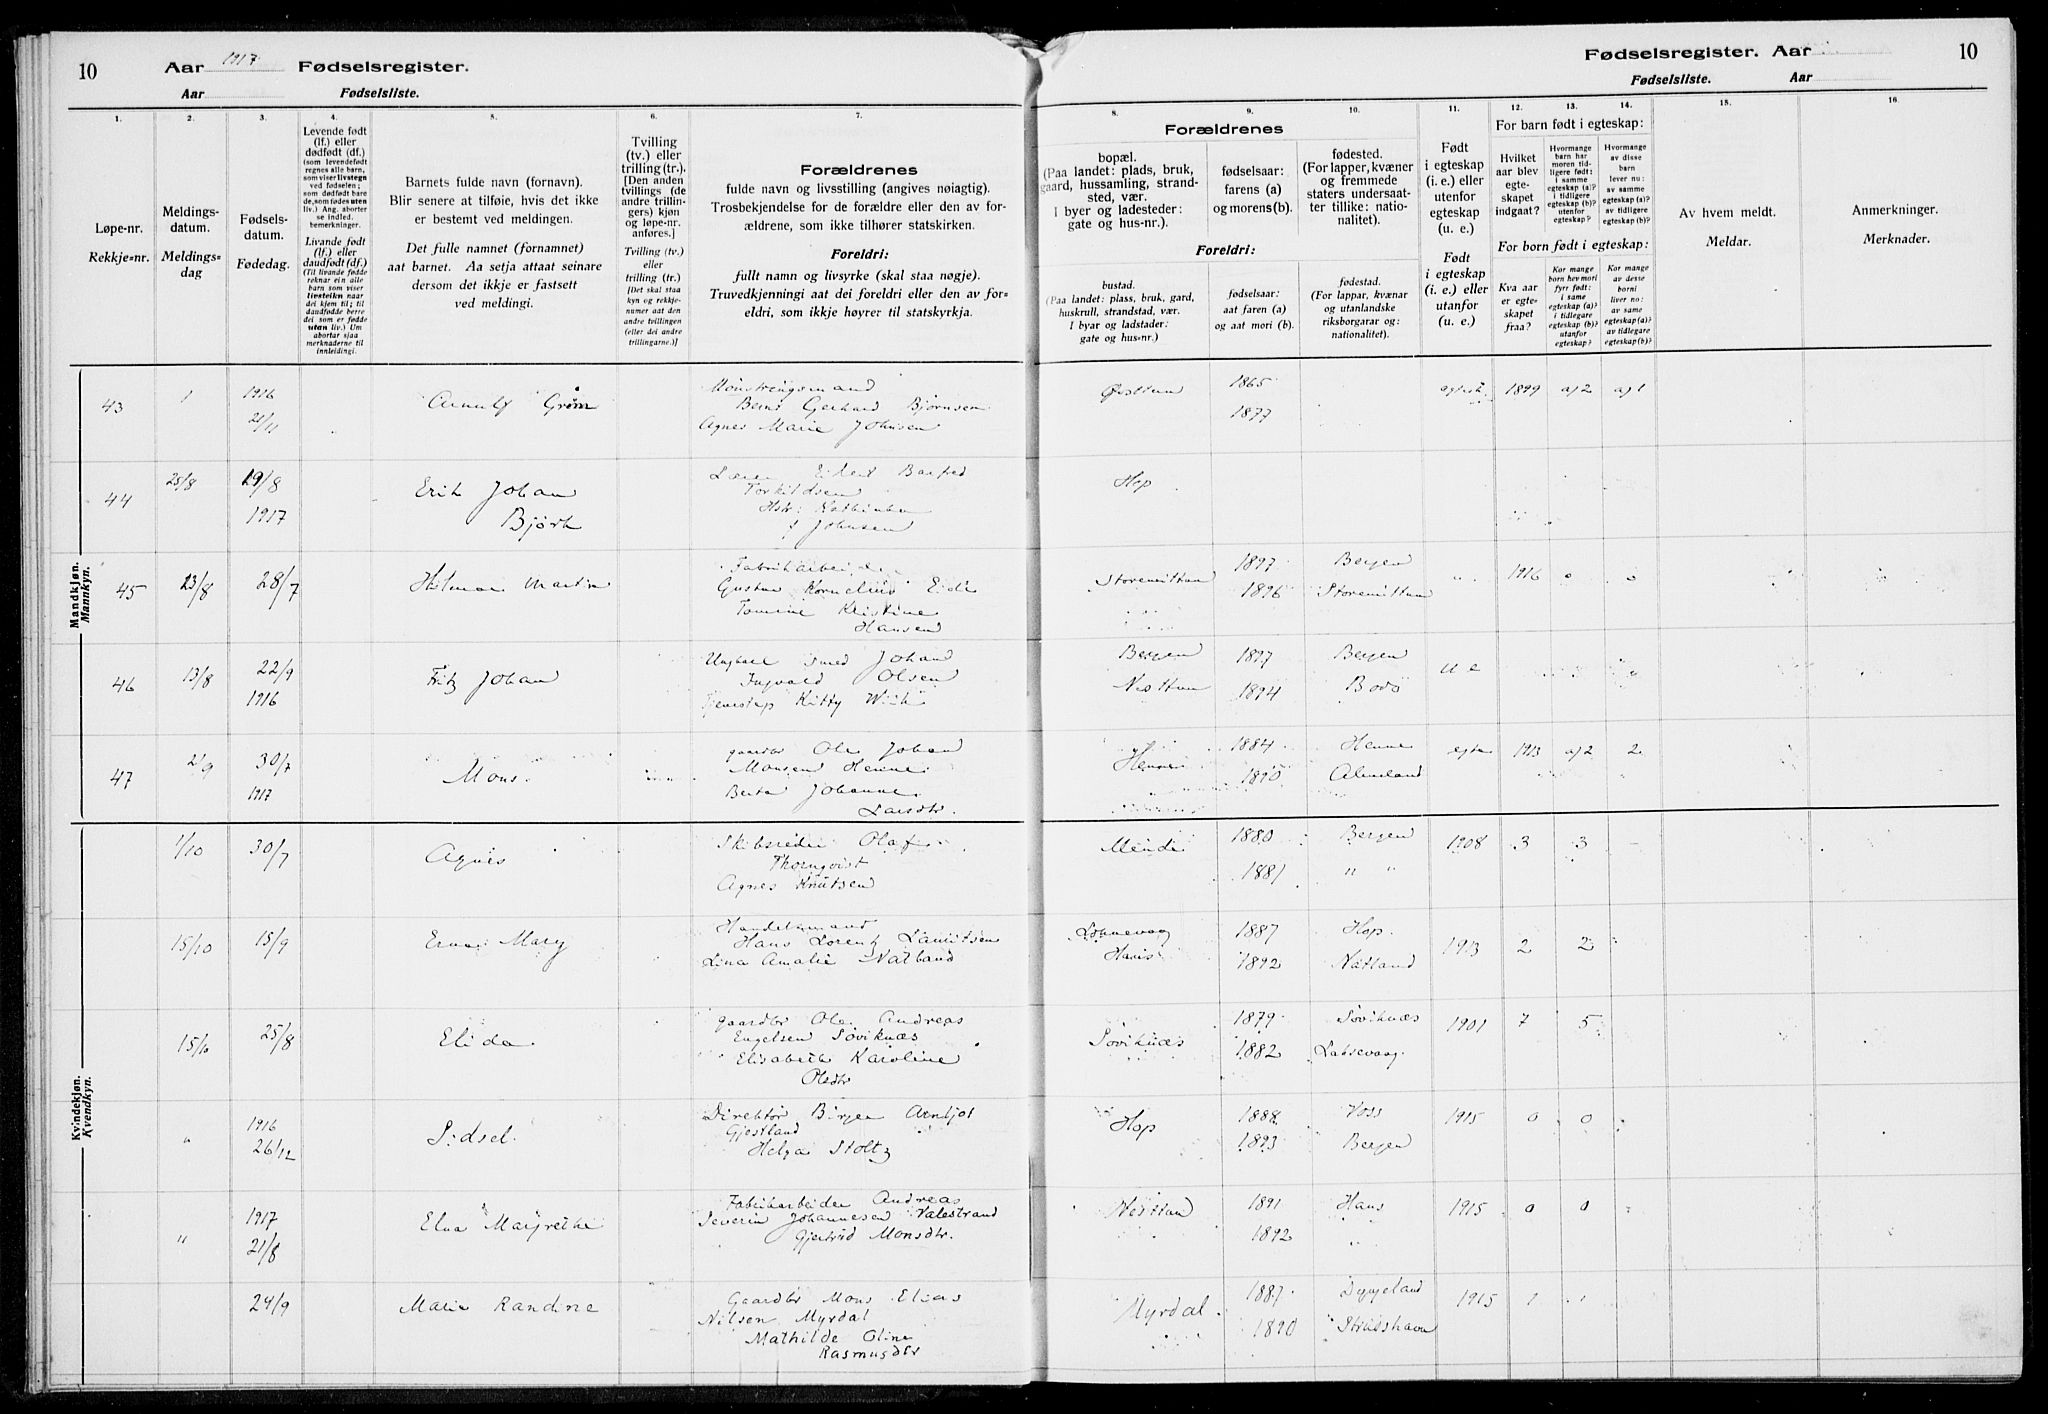 10 Aar 1917 Fødselsregister.
Aar Fødselsliste.
Fødselsregister. Aar 10
Fødselsliste. Aar
1. 2. 3. 4. 5. 6. 7. 8. 9. 10. 11. 12. 13. 14. 15. 16.
Løpe-nr.
Rekkje=nr.
Meldings-
datum.
Meldings=
dag
Fødsels-
datum.
Fødedag.
Levende født
(lf.) eller
dødfødt (df.)
(som levendefødt
regnes alle barn,
som viser livstegn
ved fødselen;
som dødfødt bare
de, som fødes uten
liv.) Ang. aborter
se indled.
bemerkninger.
Livande født
(lf.) eller
daudfødt (df.)
(Til livande fødde
reknar ein alle
barn som viser
livsteikn naar
dei kjem til; til
daudfødde berre
dei som er fødde
utan liv.) Um
abortar sjaa
merknaderne til
innleidingi.
Barnets fulde navn (fornavn).
Blir senere at tilføie, hvis det ikke
er bestemt ved meldingen.
Det fulle namnet (fornamnet)
aat barnet. Aa setja attaat seinare
dersom det ikkje er fastsett
ved meldingi.
Tvilling
(tv.) eller
trilling (tr.).
[Den anden
tvillings (de
andre trillin-
gers) kjøn
og løpe-nr.
anføres.]
Tvilling (tv.)
eller
trilling (tr.)
[Det skal staa
kyn og rekkje-
numer aat den
andre tvillingen
(eller dei andre
trillingarne.)]
Forældrenes
fulde navn og livsstilling (angives nøiagtig).
Trosbekjendelse for de forældre eller den av for-
ældrene, som ikke tilhører statskirken.
Foreldri:
fullt namn og livsyrke (skal staa nøgje).
Truvedkjenningi aat dei foreldri eller den av for=
eldri, som ikkje høyrer til statskyrkja.
Forældrenes
bopæl.
(Paa landet: plads, bruk,
gaard, hussamling, strand-
sted, vær.
I byer og ladesteder:
gate og hus-nr.).
fødselsaar:
farens (a)
og morens (b).
fødested.
(For lapper, kvæner
og fremmede
staters undersaat-
ter tillike: natio-
nalitet).
Foreldri:
bustad.
(Paa landet: plass, bruk, gard,
huskrull, strandstad, vær.
I byar og ladstader:
gate og hus=nr.)
fødselsaar:
aat faren (a)
og aat mori (b).
fødestad.
(For lappar, kvænar
og utanlandske
riksborgarar og:
nationalitet).
Født
i egteskap
(i. e.) eller
utenfor
egteskap
(u. e.)
Født
i egteskap
(i. e.) eller
utanfor
(u. e.)
For barn født i egteskap:
Hvilket
aar blev
egte-
skapet
indgaat?
Hvormange
barn har
moren tid-
ligere født:
i samme
egteskap (a)?
i tidligere
egteskap (b)?
utenfor
egteskap?
Hvormange
av disse
barn
lever nu:
av samme
egteskap (a)?
av tidligere
egteskap (b)?
For born født i egteskap:
Kva aar
er egte-
skapet
fraa?
Kor mange
born hev mori
fyrr født:
i same
egteskap (a)?
i tidlegare
egteskap (b)?
utanfor
egteskap?
Kor mange
av desse
borni
liver no:
av same
egteskap (a)?
av tidlegare
egteskap (b)?
Av hvem meldt.
Meldar.
Anmerkninger.
Merknader.
Mandkjøn.
Mannkyn.
43 1 1916 21/11 Arnulf Grøm
Mønstringsmand
Bernt Gerhard Bjørnsen
Agnes Marie Johnsen
Østtun 1865 1877 egtesk. 1899 a/2 a/1
44 25/8 19/8 1917 Erik Johan
Bjørk
Eilert Banfred
Torkildsen
f Johnsen
Hop
45 23/8 28/7 Hilmar Martin
Fabrikarbeider
Gustav Kornelius Eide
Tomine Kristine
Hansen
Storemittun 1897 1896 Bergen Storemittun " 1916 0 0
46 13/8 22/9 1916 Fritz Johan
Ungkarl smed Johan
Ingvald Olsen
Tjenestep Kitty Wiik
Bergen Nesttun 1897 1894 Bergen Bodö u e
47 2/9 30/7 1917 Mons.
gaardbr Ole Johan
Monsen Henne
Berta Johanne
Larsdtr.
Henne 1884 1890 Henne Almeland egte 1913 a/2 2
Kvindekjøn.
Kvendkyn.
1/10 30/7 Agnes
Skibsreder Olaf
Thornqvist
Agnes Knutsen
Minde 1880 1881 Bergen " " 1908 3 3 -
15/10 15/9 Erna Mary
Handelsmand
Hans Lorentz Lauritsen
Lina Amalie Natland
Lønnevaag
Haus 1887 1892 Hop. Natland 1913 2 2
15/10 25/8 Elida
gaardbr Ole Andreas
Engelsen Søviknæs
Elisabeth Karoline
Olsdtr
Søviknæs 1879 1882 Søviknæs Laksevaag. 1901 7 5
" 1916 26/12 Sidsel.
Direktør Birger Arnljot
Gjestland
Helga Stoltz
Hop 1888 1893 Voss Bergen 1915 0 0
" 1917 21/8 Elna Margrethe
Fabrikarbeider Andreas
Severin Johannesen Valestrand
Gjertrud Monsdtr.
Nesttun 1891 1892 Haus " 1915 0 0
24/9 Marie Randine
Gaardbr Mons Elias
Nilsen Myrdal
Mathilde Oline
Rasmusdtr
Myrdal 1887 1890 Dyngeland Strudshavn 1915 1 1